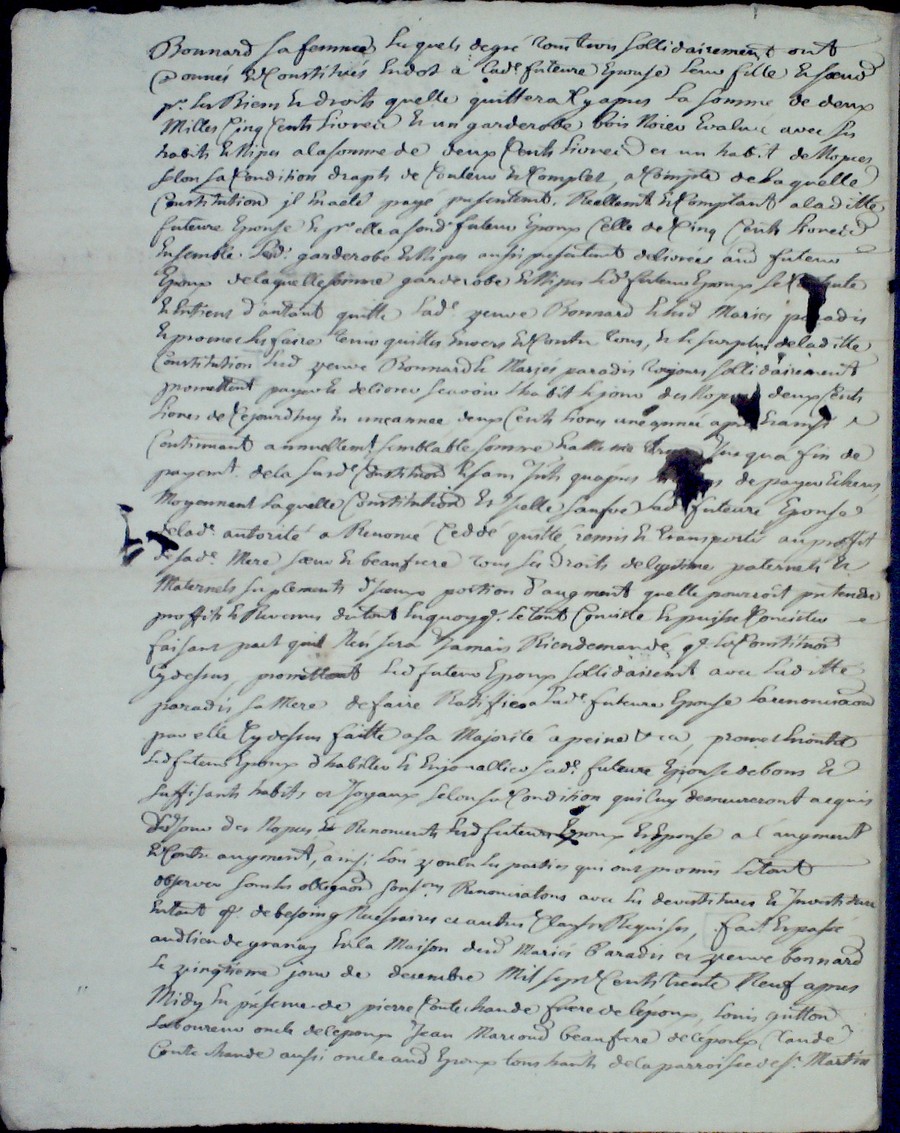 Bonnard sa femme lesquels de gré tous trois sollidairement ont
donnés & Constitués en dot à lad. future Epouse leur fille & soeur
pr. les Biens & droits quelle quittera Cy apres La somme de deux
Milles Cinq Cents Livres & un garderobe bois Noier Evalué avec ses
habits & Nipes ala somme de deux Cents Livres et un habit de Nopces
selon sa Condition draph de Couleur & Complet, a Compte de laquelle
Constitution jl en a été payé presentement. Reellement & Comptant aladitte
future Epouse & pr. elle a sond. futeur Epoux Celle de Cinq Cents Livres
Ensemble led. garderobe & Nipes aussi presentement delivres aud futeur
Epoux de laquelle somme garderobe & Nipes led. futeur Epoux se
& d'autant quitte lad. veuve Bonnard & lesd Mariés paradis
& promet les faire tenir quittes envers & Contre tous, & le surplus de laditte
Constitution lesd veuve Bonnard & Mariés paradis toujours sollidairement
promettent payer & delivrer scavoir lhabit le jour des Nopces deux Cents
Livres de Cejourdhuy en une année deux Cents Livres une année apres & ainsi
Continuant annuellemt. semblable somme a Jusqua fin de
payemt. de la susde. Constitution & sans Jnts. quapres de payer Echeus,
Moyennant laquelle Constitution & Jcelle sauve lad. future Epouse
delad. autorité a Renoncé Ceddé quitté remis & transporté au proffit
de sade. Mere soeur & beaufrere tous ses droits de legitime paternels &
Maternels suplements d'Jceux portion d'augment quelle pourroit pretendre
proffits & Revenus du tout en quoyq. le tout Consiste & puisse Consister
faisant pact quil Ne sera Jamais Rien demandé q. la Constitution
Cy dessus, promettant led futeur Epoux sollidairemt. avec laditte
paradis sa Mere de faire Ratiffier a lade. future Epouse la renonciaon
par elle Cy dessus faitte a sa Majorité a peine &ca, promet
led futeur Epoux d'habiller & Enjoyallier sade. future Epouse de bons &
suffisants habits et Joyaux selon sa Condition qui luy demeureront acquis
led Jour des Nopces & Renoncent lesd futeurs Epoux & Epouse a l'augment
& Contre augment, ainsi lon voulu les parties qui ont promis le tout
observer sous les obligaons Renonciations avec les devestitures & Jnvestitures
Entant q. de besoing Necessaires et autres Clauses Requises, fait & passé
aud lieu de granay En la Maison desd Mariés Paradis et veuve bonnard
Le vingtieme jour de decembre Mil sept Cents trente Neuf apres
Midy En présence de pierre Contechande frere de l'époux, Louis guitton
Laboureur oncle de lépoux Jean Marcoud beaufrere de l'époux Claude
Contechande aussi oncle aud Epoux tous habts. de la parroisse de st. Martin